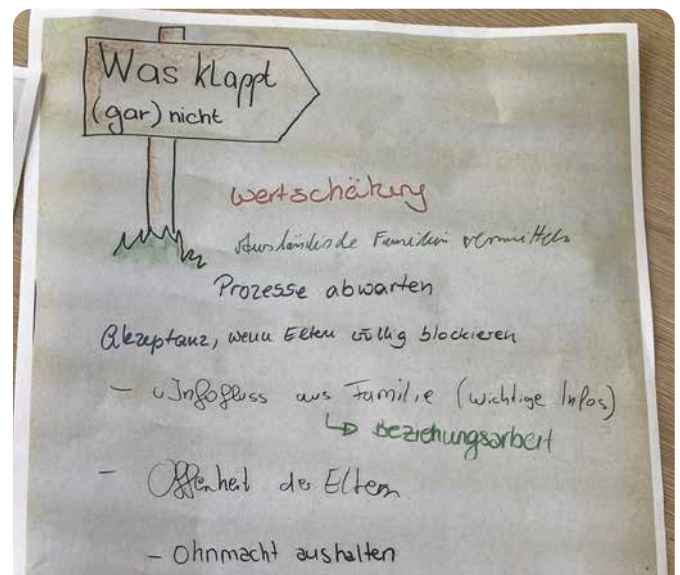 Was klappt
(gar) nicht
Wertschätzung
Ausländische Familien vermitteln
Prozesse abwarten
Akzeptanz, wenn Eltern völlig blockieren
- Infofluss aus Familie (wichtige Infos)
↳ Beziehungsarbeit
- Offenheit der Eltern
- Ohnmacht aushalten